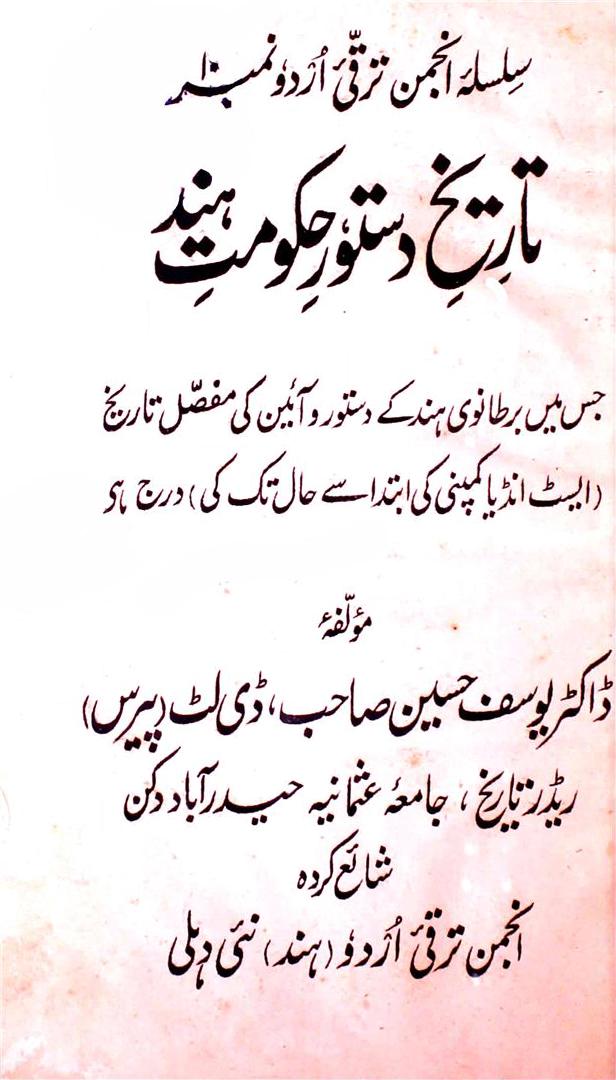 سلسلۂ انجمن ترقیٔ اُردو نمبر ۱۰
تاریخِ دستورِ حکومتِ ہند
جس میں برطانوی ہند کے دستور و آئین کی مفصّل تاریخ
(ایسٹ انڈیا کمپنی کی ابتدا سے حال تک کی) درج ہو
مؤلّفۂ
ڈاکٹر یوسف حسین صاحب، ڈی لٹ (پیرس)
ریڈر تاریخ، جامعۂ عثمانیہ حیدرآباد دکن
شائع کردہ
انجمن ترقیٔ اُردو (ہند) نئی دہلی